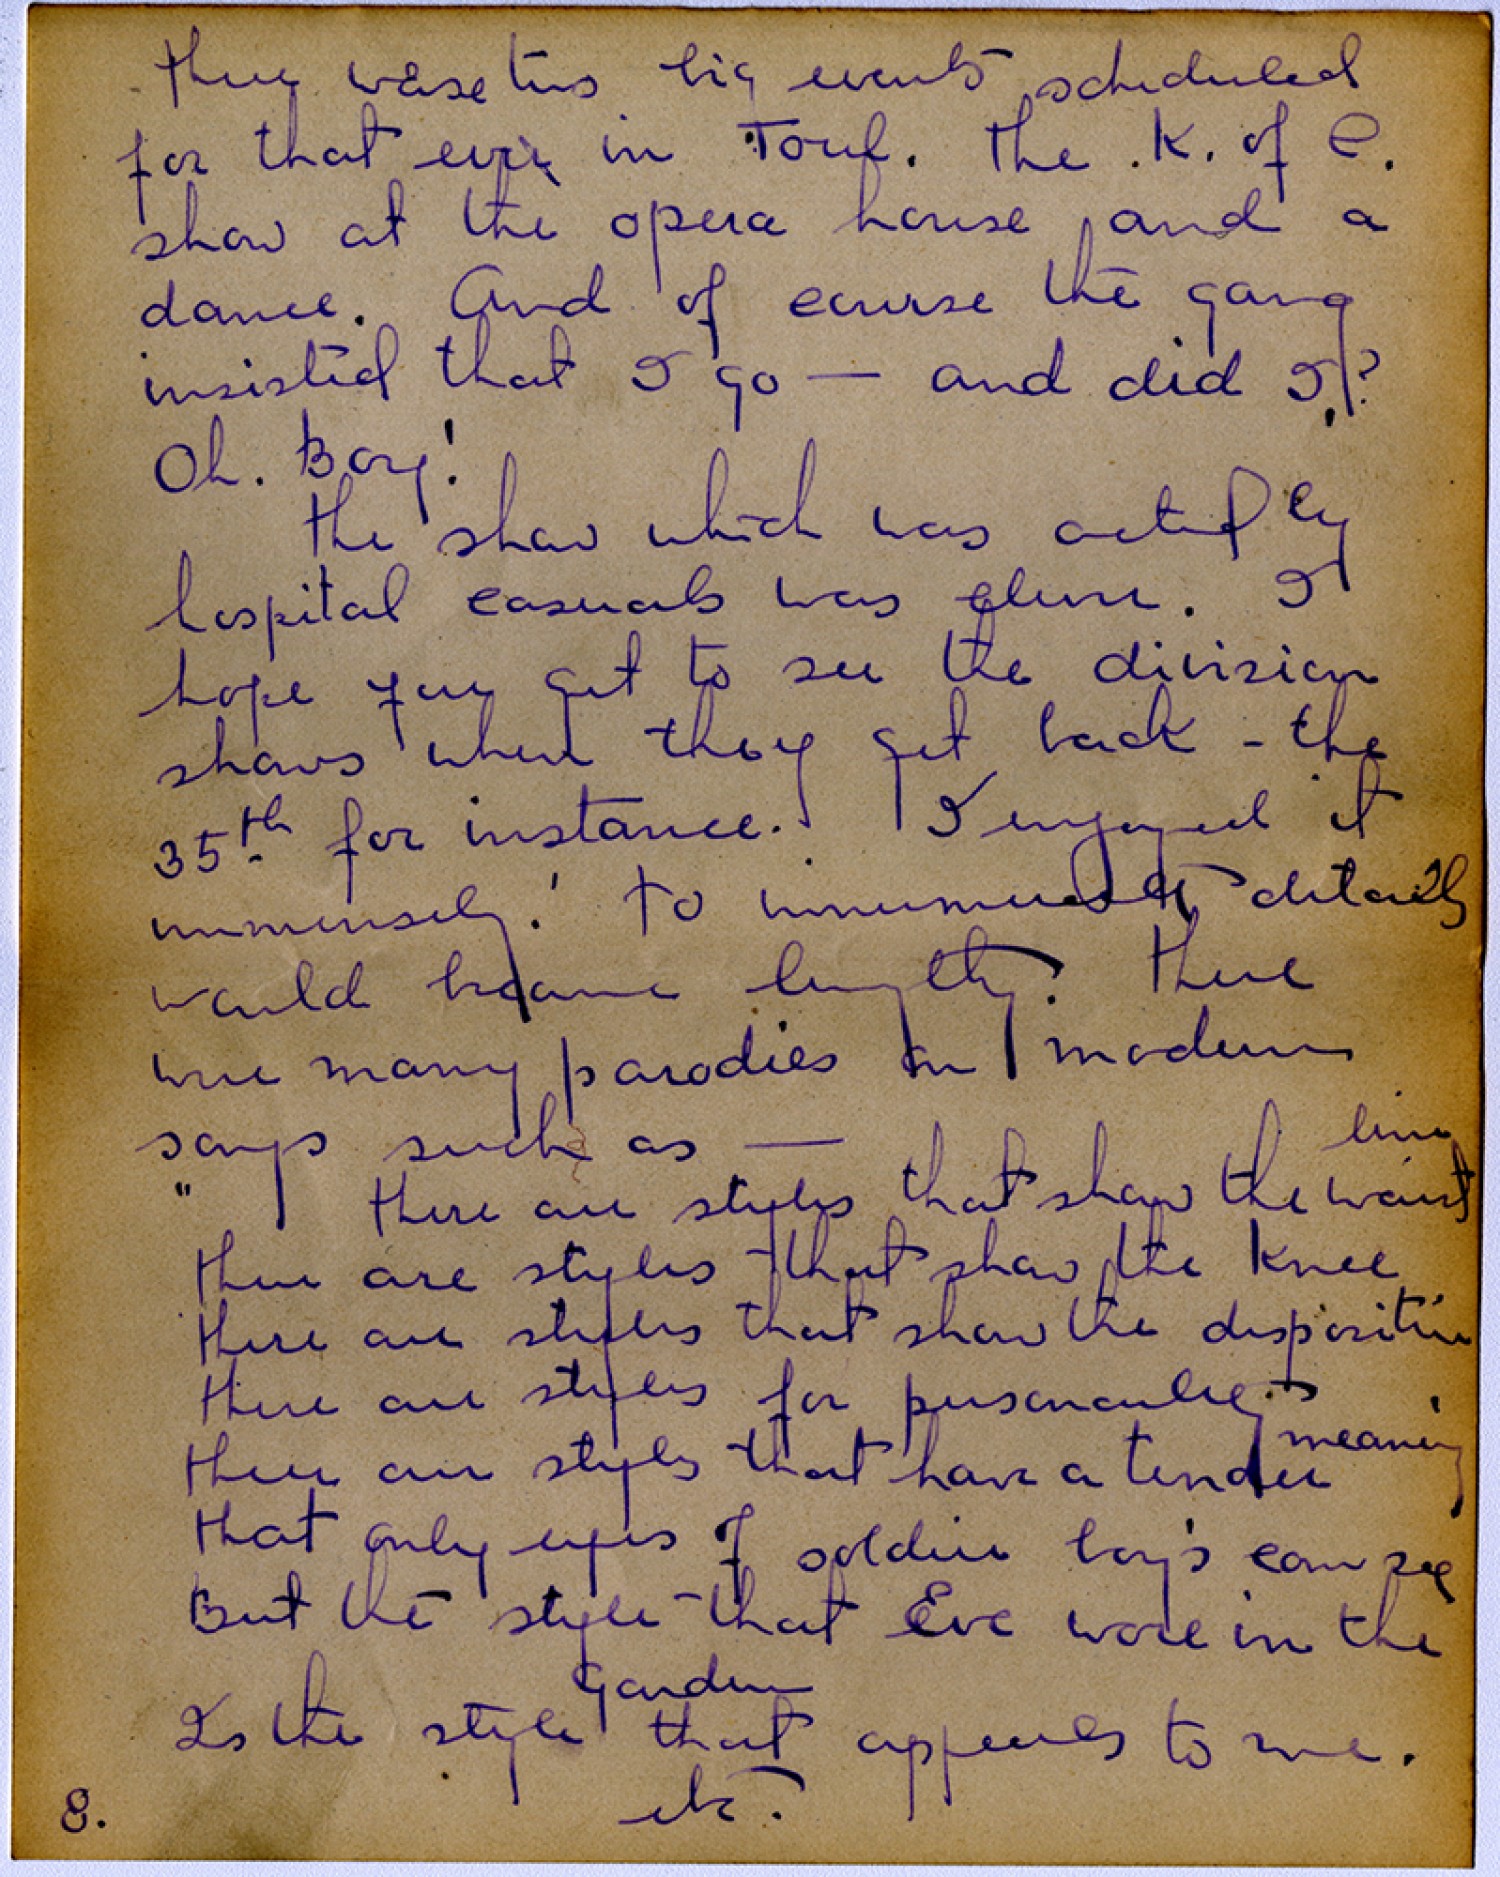 There were two big events scheduled
for that eve in Toul. The K. of C.
show at the opera house, and a
dance. And of course the gang
insisted that I go — and did I?
Oh. Boy!
The show which was acted by
hospital casuals was
I
hope you get to see the division
shows when they get back - the
35th for instance. I enjoyed it
immensely! To innumerate details
would become lengthy. There
were many parodies on modern
songs such as —
" There are styles that show the waist line
There are styles that show the knee
There are styles that show the disposition
There are styles for personality
There are styles that have a tender meaning
That only eyes of soldier boy's can see
But the style that Eve wore in the
Garden
Is the style that appeals to me.
etc.
8.